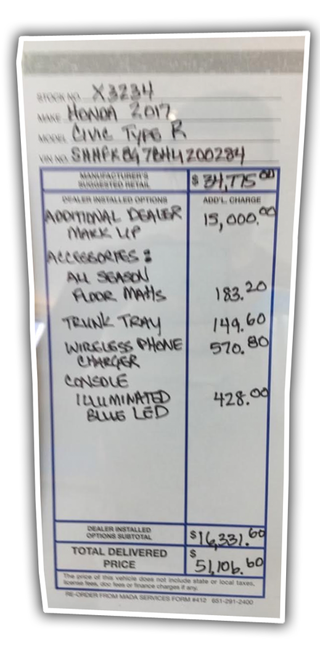 STOCK NO. X3234
MAKE HONDA 2017
MODEL CIVIC TYPE R
VIN NO. SHHFK8G7BHU200284
MANUFACTURER'S SUGGESTED RETAIL $34,775.00
DEALER INSTALLED OPTIONS ADD'L. CHARGE
ADDITIONAL DEALER 15,000.00
MARK UP
ACCESSORIES:
ALL SEASON
FLOOR MATTS 183.20
TRUNK TRAY 149.60
WIRELESS PHONE 570.80
CHARGER
CONSOLE
ILLUMINATED 428.00
BLUE LED
DEALER INSTALLED
OPTIONS SUBTOTAL $16,331.60
TOTAL DELIVERED PRICE $51,106.60
The price of this vehicle does not include state or local taxes,
license fees, doc fees or finance charges if any.
RE-ORDER FROM MADA SERVICES FORM #412 651-291-2400